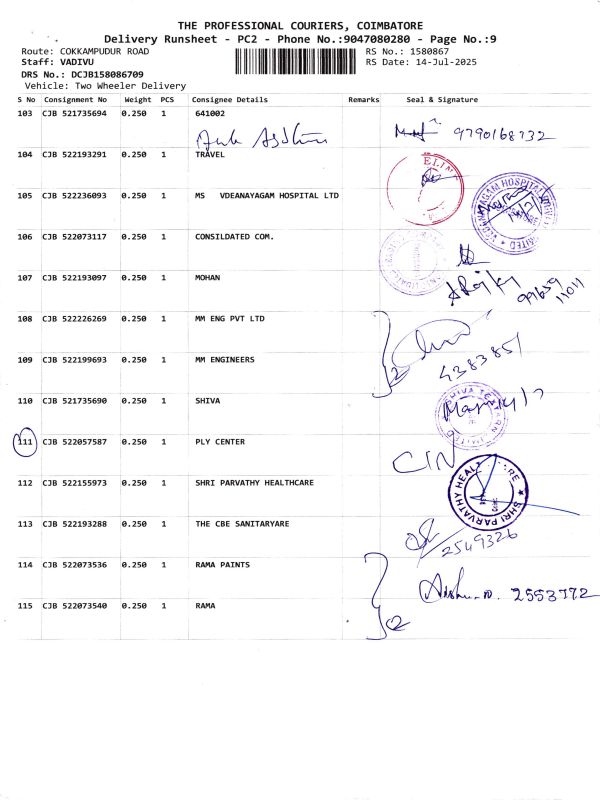 THE PROFESSIONAL COURIERS, COIMBATORE
Delivery Runsheet - PC2 - Phone No.:9047080280 - Page No.:9
Route: COKKAMPUDUR ROAD RS No.: 1580867
Staff: VADIVU RS Date: 14-Jul-2025
DRS No.: DCJB158086709
Vehicle: Two Wheeler Delivery
S No Consignment No Weight PCS Consignee Details Remarks Seal & Signature
103 CJB 521735694 0.250 1 641002
9790168732
104 CJB 522193291 0.250 1 TRAVEL
105 CJB 522236093 0.250 1 MS VDEANAYAGAM HOSPITAL LTD
106 CJB 522073117 0.250 1 CONSILDATED COM.
107 CJB 522193097 0.250 1 MOHAN
99659
11011
108 CJB 522226269 0.250 1 MM ENG PVT LTD
109 CJB 522199693 0.250 1 MM ENGINEERS
4383851
110 CJB 521735690 0.250 1 SHIVA
111 CJB 522057587 0.250 1 PLY CENTER
112 CJB 522155973 0.250 1 SHRI PARVATHY HEALTHCARE
SHRI PARVATHY HEALTHCARE
113 CJB 522193288 0.250 1 THE CBE SANITARYARE
2549326
114 CJB 522073536 0.250 1 RAMA PAINTS
2553772
115 CJB 522073540 0.250 1 RAMA